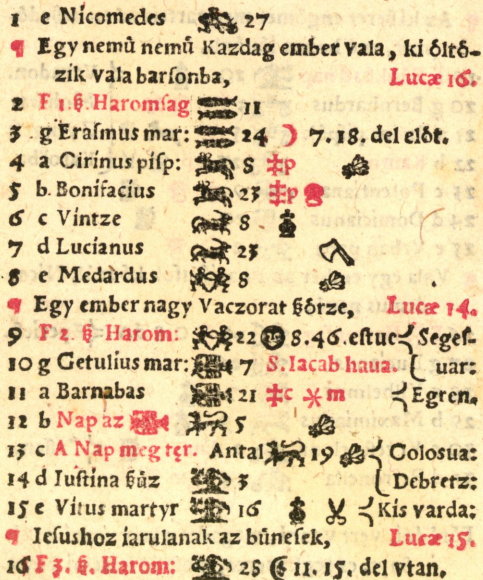 1 e Nicomedes 27
¶ Egy nemű nemű Kazdag ember vala, ki öltö-
zik vala barſonba, Lucæ 16.
2 F 1. ß. Haromſag 11
3 g Eraſmus mar: 24 ☽ 7. 18. del elöt.
4 a Cirinus piſp: 8 ‡p
5 b. Bonifacius 23 ‡p
6 c Vintze 8
7 d Lucianus 23
8 e Medardus 8
¶ Egy ember nagy Vaczorat ßörze, Lucæ 14.
9 F 2. ß. Harom: 22 8. 46. eſtue Segeſ-
10 g Getulius mar: 7 S. Iacab haua. uar:
11 a Barnabas 21 ‡c m Egren.
12 b Nap az 5
13 c A Nap megter. Antal 19 Coloſua:
14 d Iuſtina ßűz 3 Debretz:
15 e Vitus martyr 16 Kis varda:
¶ Ieſushoz iarulanak az bűneſek, Lucæ 15.
16 F 3. ß. Harom: 28 ☾ 11. 15. del vtan.